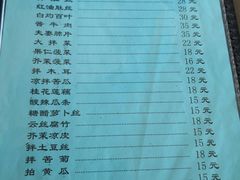 红油肚丝 28元
白灼百叶 30元
酱牛肉 35元
夫妻肺片 35元
大拌菜 18元
果仁菠菜 18元
芥末菠菜 16元
拌木耳 22元
凉拌苦瓜 18元
桂花莲藕 18元
酸辣瓜条 15元
糖醋萝卜丝 15元
云丝腐竹 15元
芥末凉皮 15元
拌土豆丝 15元
拌苦菊 18元
拍黄瓜 15元